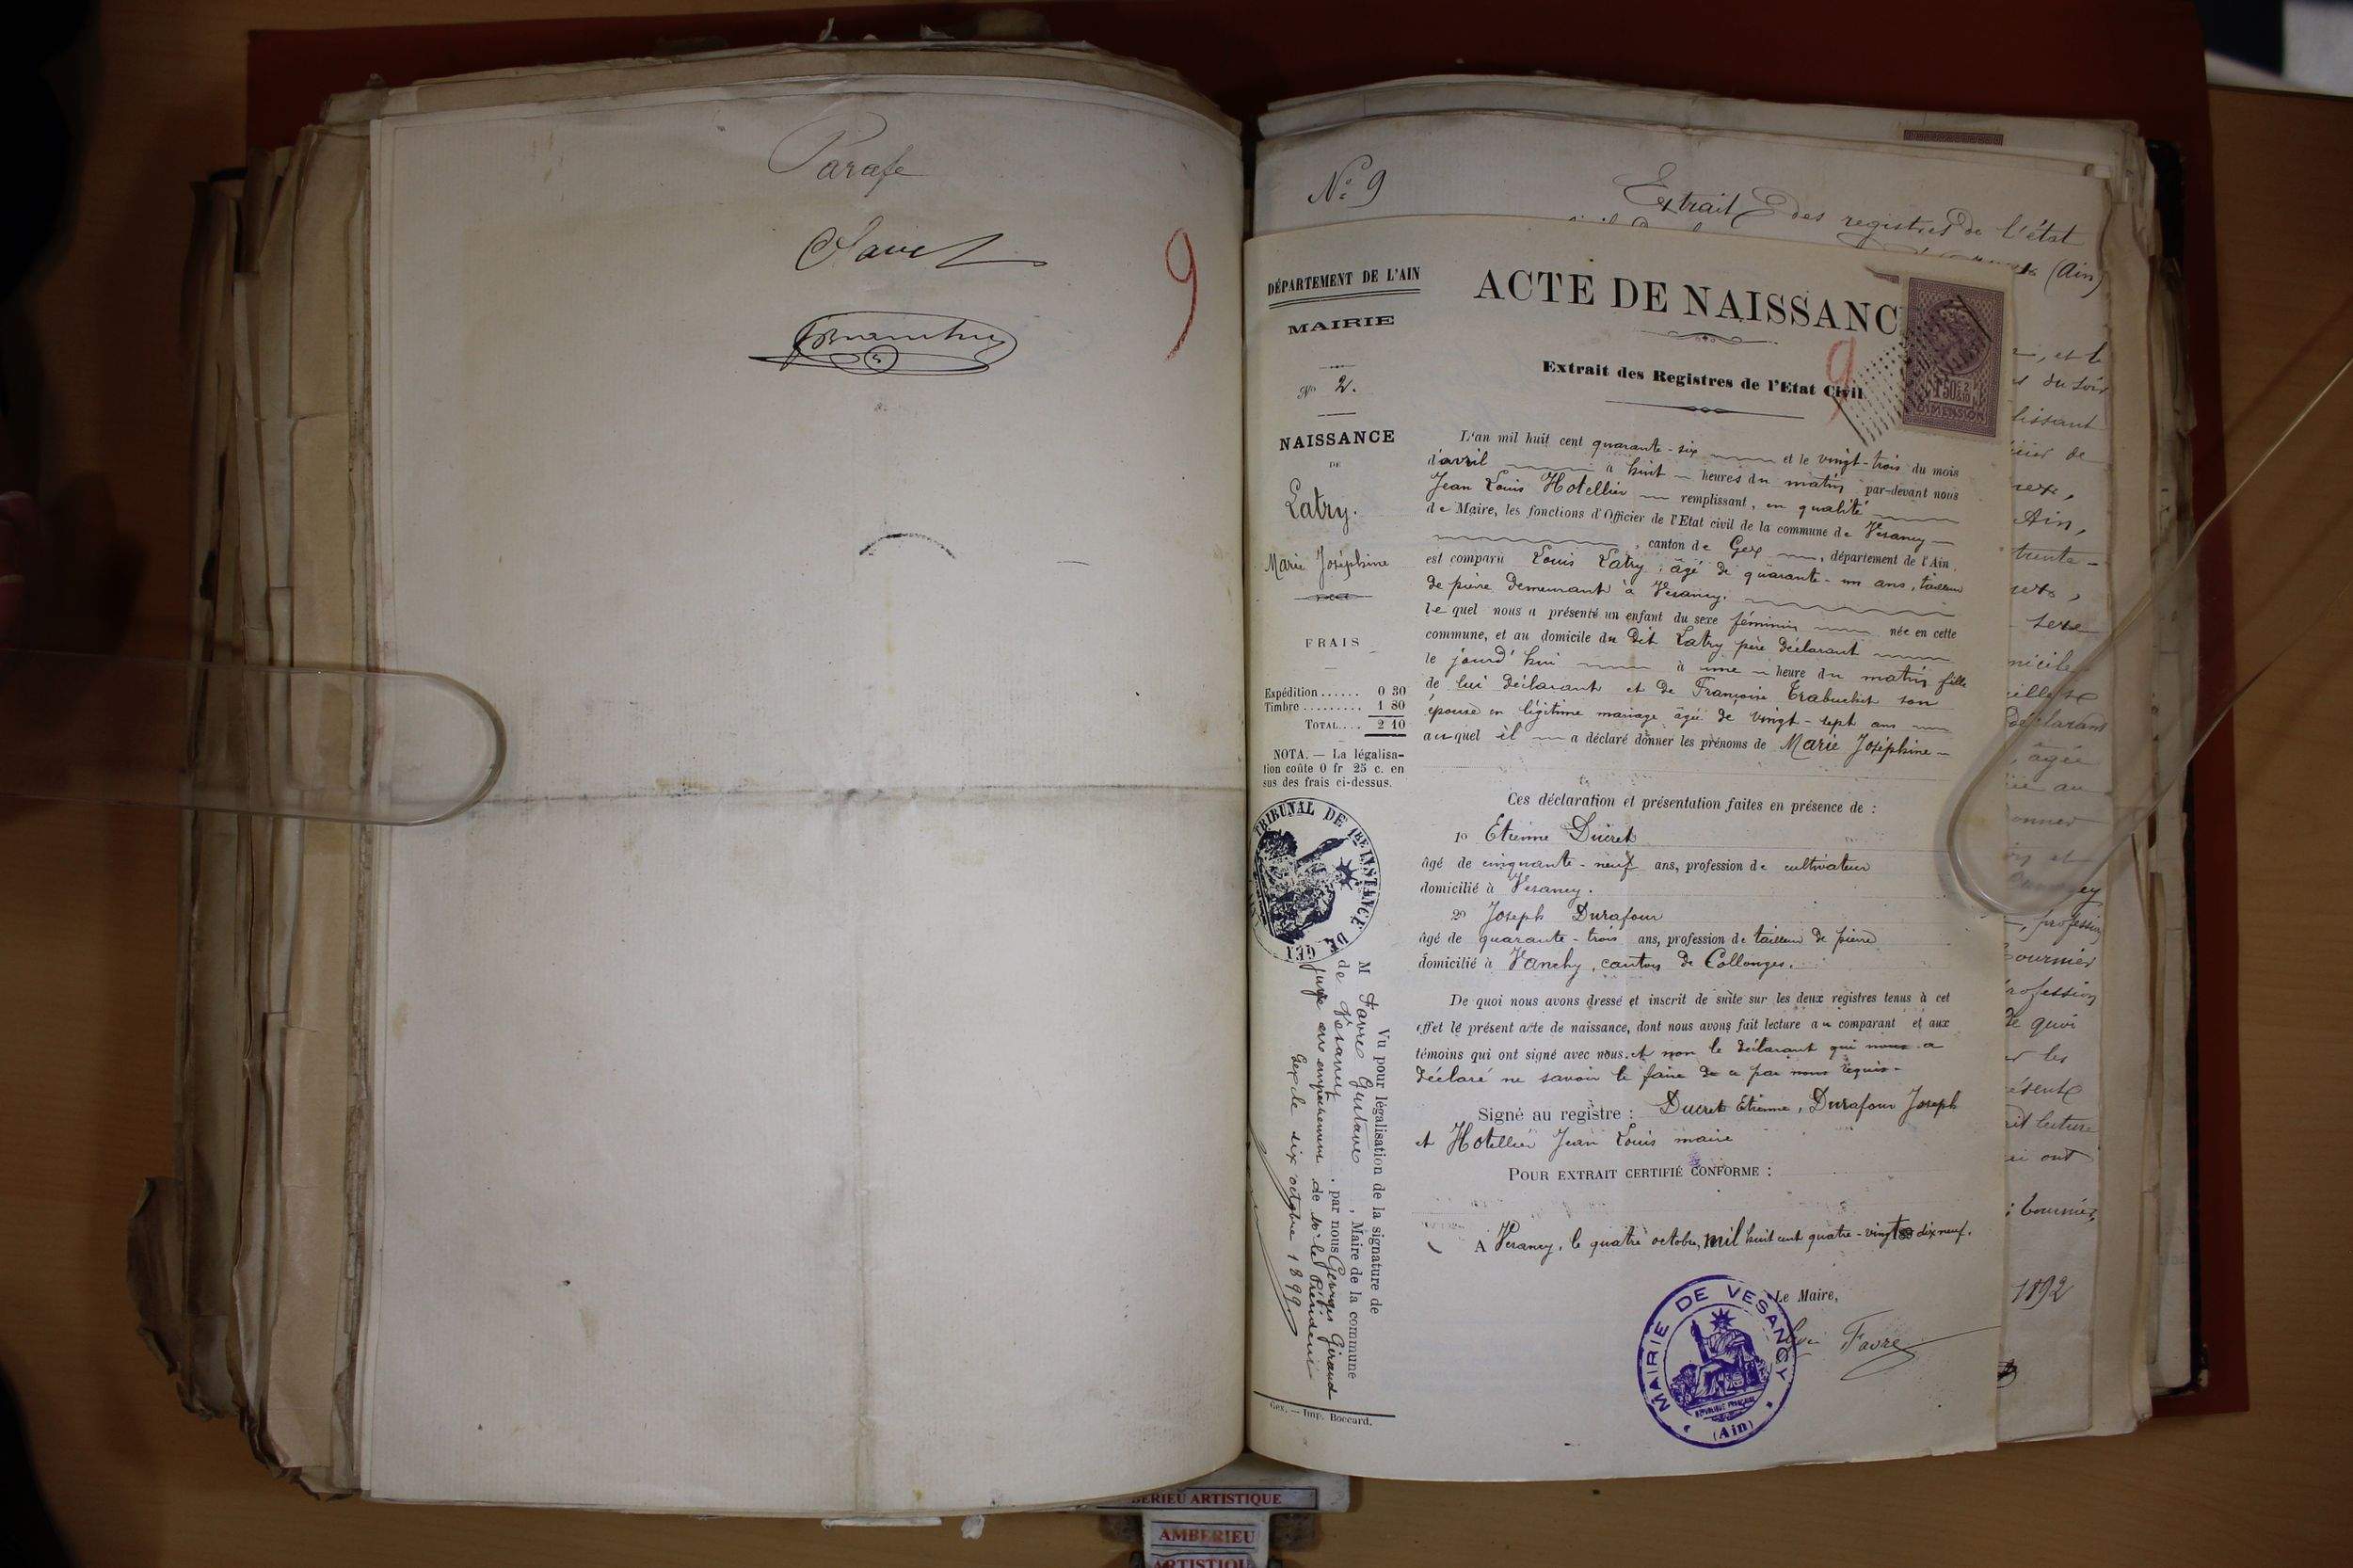 Parafe
9
N° 9
Extrait des registres de l'état
(Ain)
DÉPARTEMENT DE L'AIN
MAIRIE
N° 2.
NAISSANCE
DE
Latry.
Marie Joséphine
FRAIS
Expédition...... 0 30
Timbre......... 1 80
TOTAL.... 2 10
NOTA. — La légalisa-
tion coûte 0 fr 25 c. en
sus des frais ci-dessus.
TRIBUNAL DE 1RE INSTANCE DE GEX
Vu pour légalisation de la signature de
M Favre Gustave, Maire de la commune
de Vesancy, par nous Georges Giraud
juge en empêchement de Mr le Président
Gex le six octobre 1899
Gex. — Imp. Boccard.
ACTE DE NAISSANC
Extrait des Registres de l'Etat Civil
9
1F50c 2/10
DIMENSION
L'an mil huit cent quarante-six et le vingt-trois du mois
d'avril à huit heures du matin par-devant nous
Jean Louis Hotellier remplissant, en qualité
de Maire, les fonctions d'Officier de l'Etat civil de la commune de Vesancy
, canton de Gex, département de l'Ain
est comparu Louis Latry, âgé de quarante-un ans, tailleur
de pierre demeurant à Vesancy.
lequel nous a présenté un enfant du sexe féminin née en cette
commune, et au domicile du dit Latry père déclarant
le jourd'hui à une heure du matin fille
de lui déclarant et de Françoise Trabuchet son
épouse en légitime mariage âgée de vingt-sept ans
auquel il a déclaré donner les prénoms de Marie Joséphine
Ces déclaration et présentation faites en présence de :
1° Etienne Ducret
âgé de cinquante-neuf ans, profession de cultivateur
domicilié à Vesancy.
2° Joseph Durafour
âgé de quarante-trois ans, profession de tailleur de pierre
domicilié à Vanchy, canton de Collonges.
De quoi nous avons dressé et inscrit de suite sur les deux registres tenus à cet
effet le présent acte de naissance, dont nous avons fait lecture au comparant et aux
témoins qui ont signé avec nous. et non le déclarant qui nous a
déclaré ne savoir le faire de ce par nous requis.
Signé au registre : Ducret Etienne, Durafour Joseph
et Hotellier Jean Louis maire
POUR EXTRAIT CERTIFIÉ CONFORME :
A Vesancy, le quatre octobre, mil huit cent quatre-vingt dix neuf.
Le Maire,
Favre
MAIRIE DE VESANCY
RÉPUBLIQUE FRANÇAISE
(Ain)
, et le
du soir
lissant
cier de
Ain,
trente-
sexe
micile
déclarant
âgée
au
onner
profession
Bournier
rofession
de quoi
les
ésent
it lecture
ui ont
: Bournier,
1892
BERIEU ARTISTIQUE
AMBERIEU
ARTISTIQU